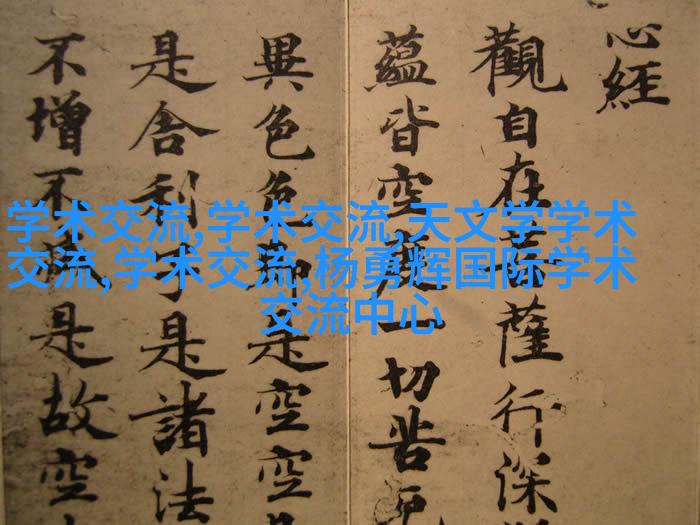 学术交流,学术交流,天文学学术
交流,学术交流,杨勇辉国际学术
交流中心
心經
觀自在菩薩行深
蘊皆空度一切苦厄
異色色即是空空
是舍利子是諸法
不增不減是故空